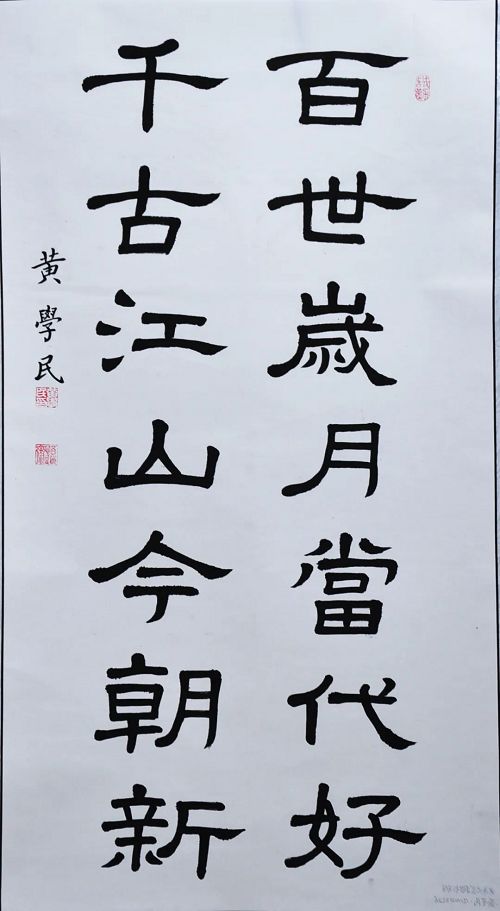 百世歲月當代好
千古江山今朝新
黃學民